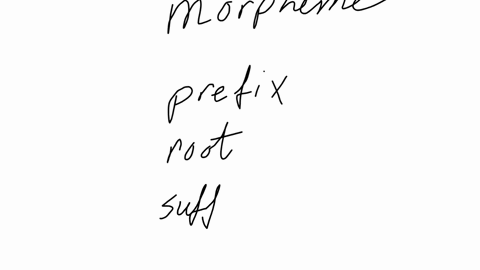 morpheme
prefix
root
suff